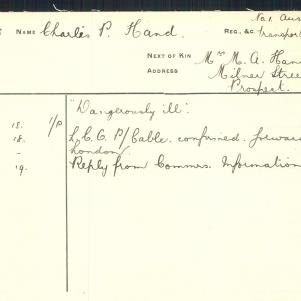 No 1 Aus
NAME Charles P. Hand. REG. &C. Transport
NEXT OF KIN Mrs M. A. Han
ADDRESS Milner Stree
Prospect.
"Dangerously ill".
18. 1/P L.C.C. P/Cable. confirmed. forward
- London/
19. Reply from Commrs. Information